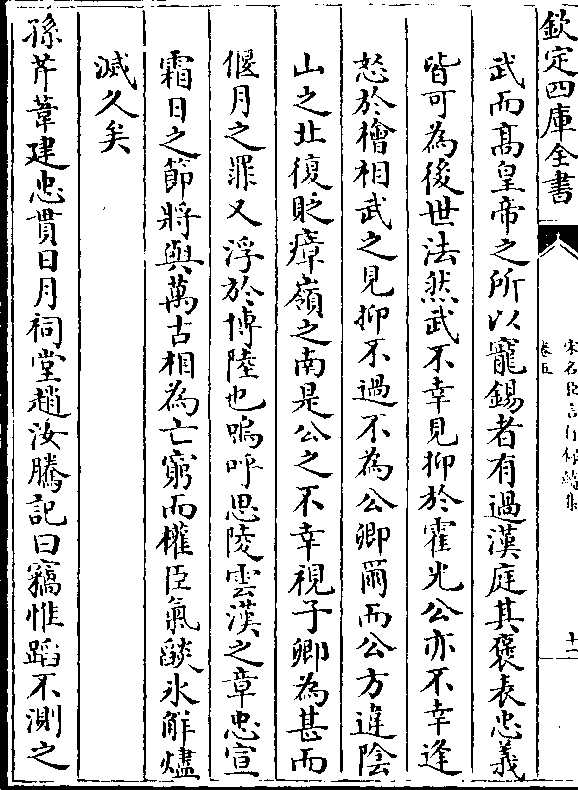 欽定四庫全書
宋名臣言行錄續集
卷五
十二
武而髙皇帝之所以寵錫者有過漢庭其褒表忠義
皆可為後世法然武不幸見抑於霍光公亦不幸逢
怒於檜相武之見抑不過不為公卿爾而公方違陰
山之北復貶瘴嶺之南是公之不幸視子卿為甚而
偃月之罪又浮於博陸也嗚呼思陵雲漢之章忠宣
霜日之節將與萬古相為亡窮而權臣氣燄氷解燼
滅久矣
孫芹葦建忠貫日月祠堂趙汝騰記曰竊惟蹈不測之